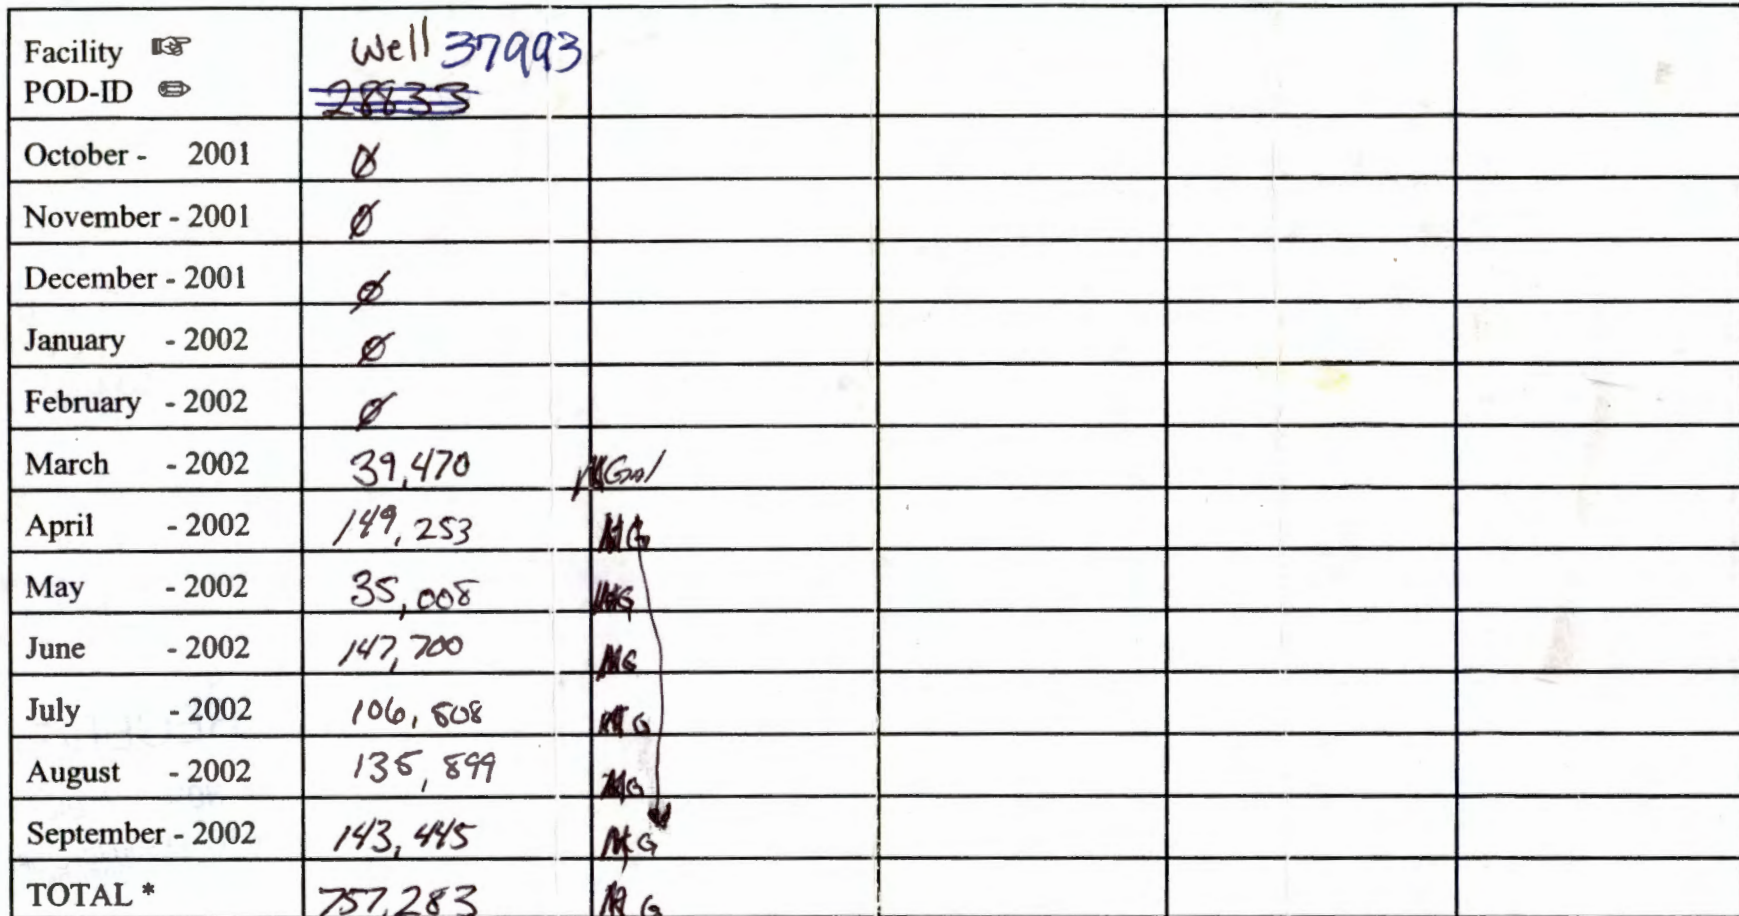 Facility ☞ Well 37993
POD-ID ✏ 28833
October - 2001 Ø
November - 2001 Ø
December - 2001 Ø
January - 2002 Ø
February - 2002 Ø
March - 2002 39,470 Gal
April - 2002 149,253 MG
May - 2002 35,008 G
June - 2002 147,700 MG
July - 2002 106,508 MG
August - 2002 135,899 MG
September - 2002 143,445 MG
TOTAL * 757,283 MG